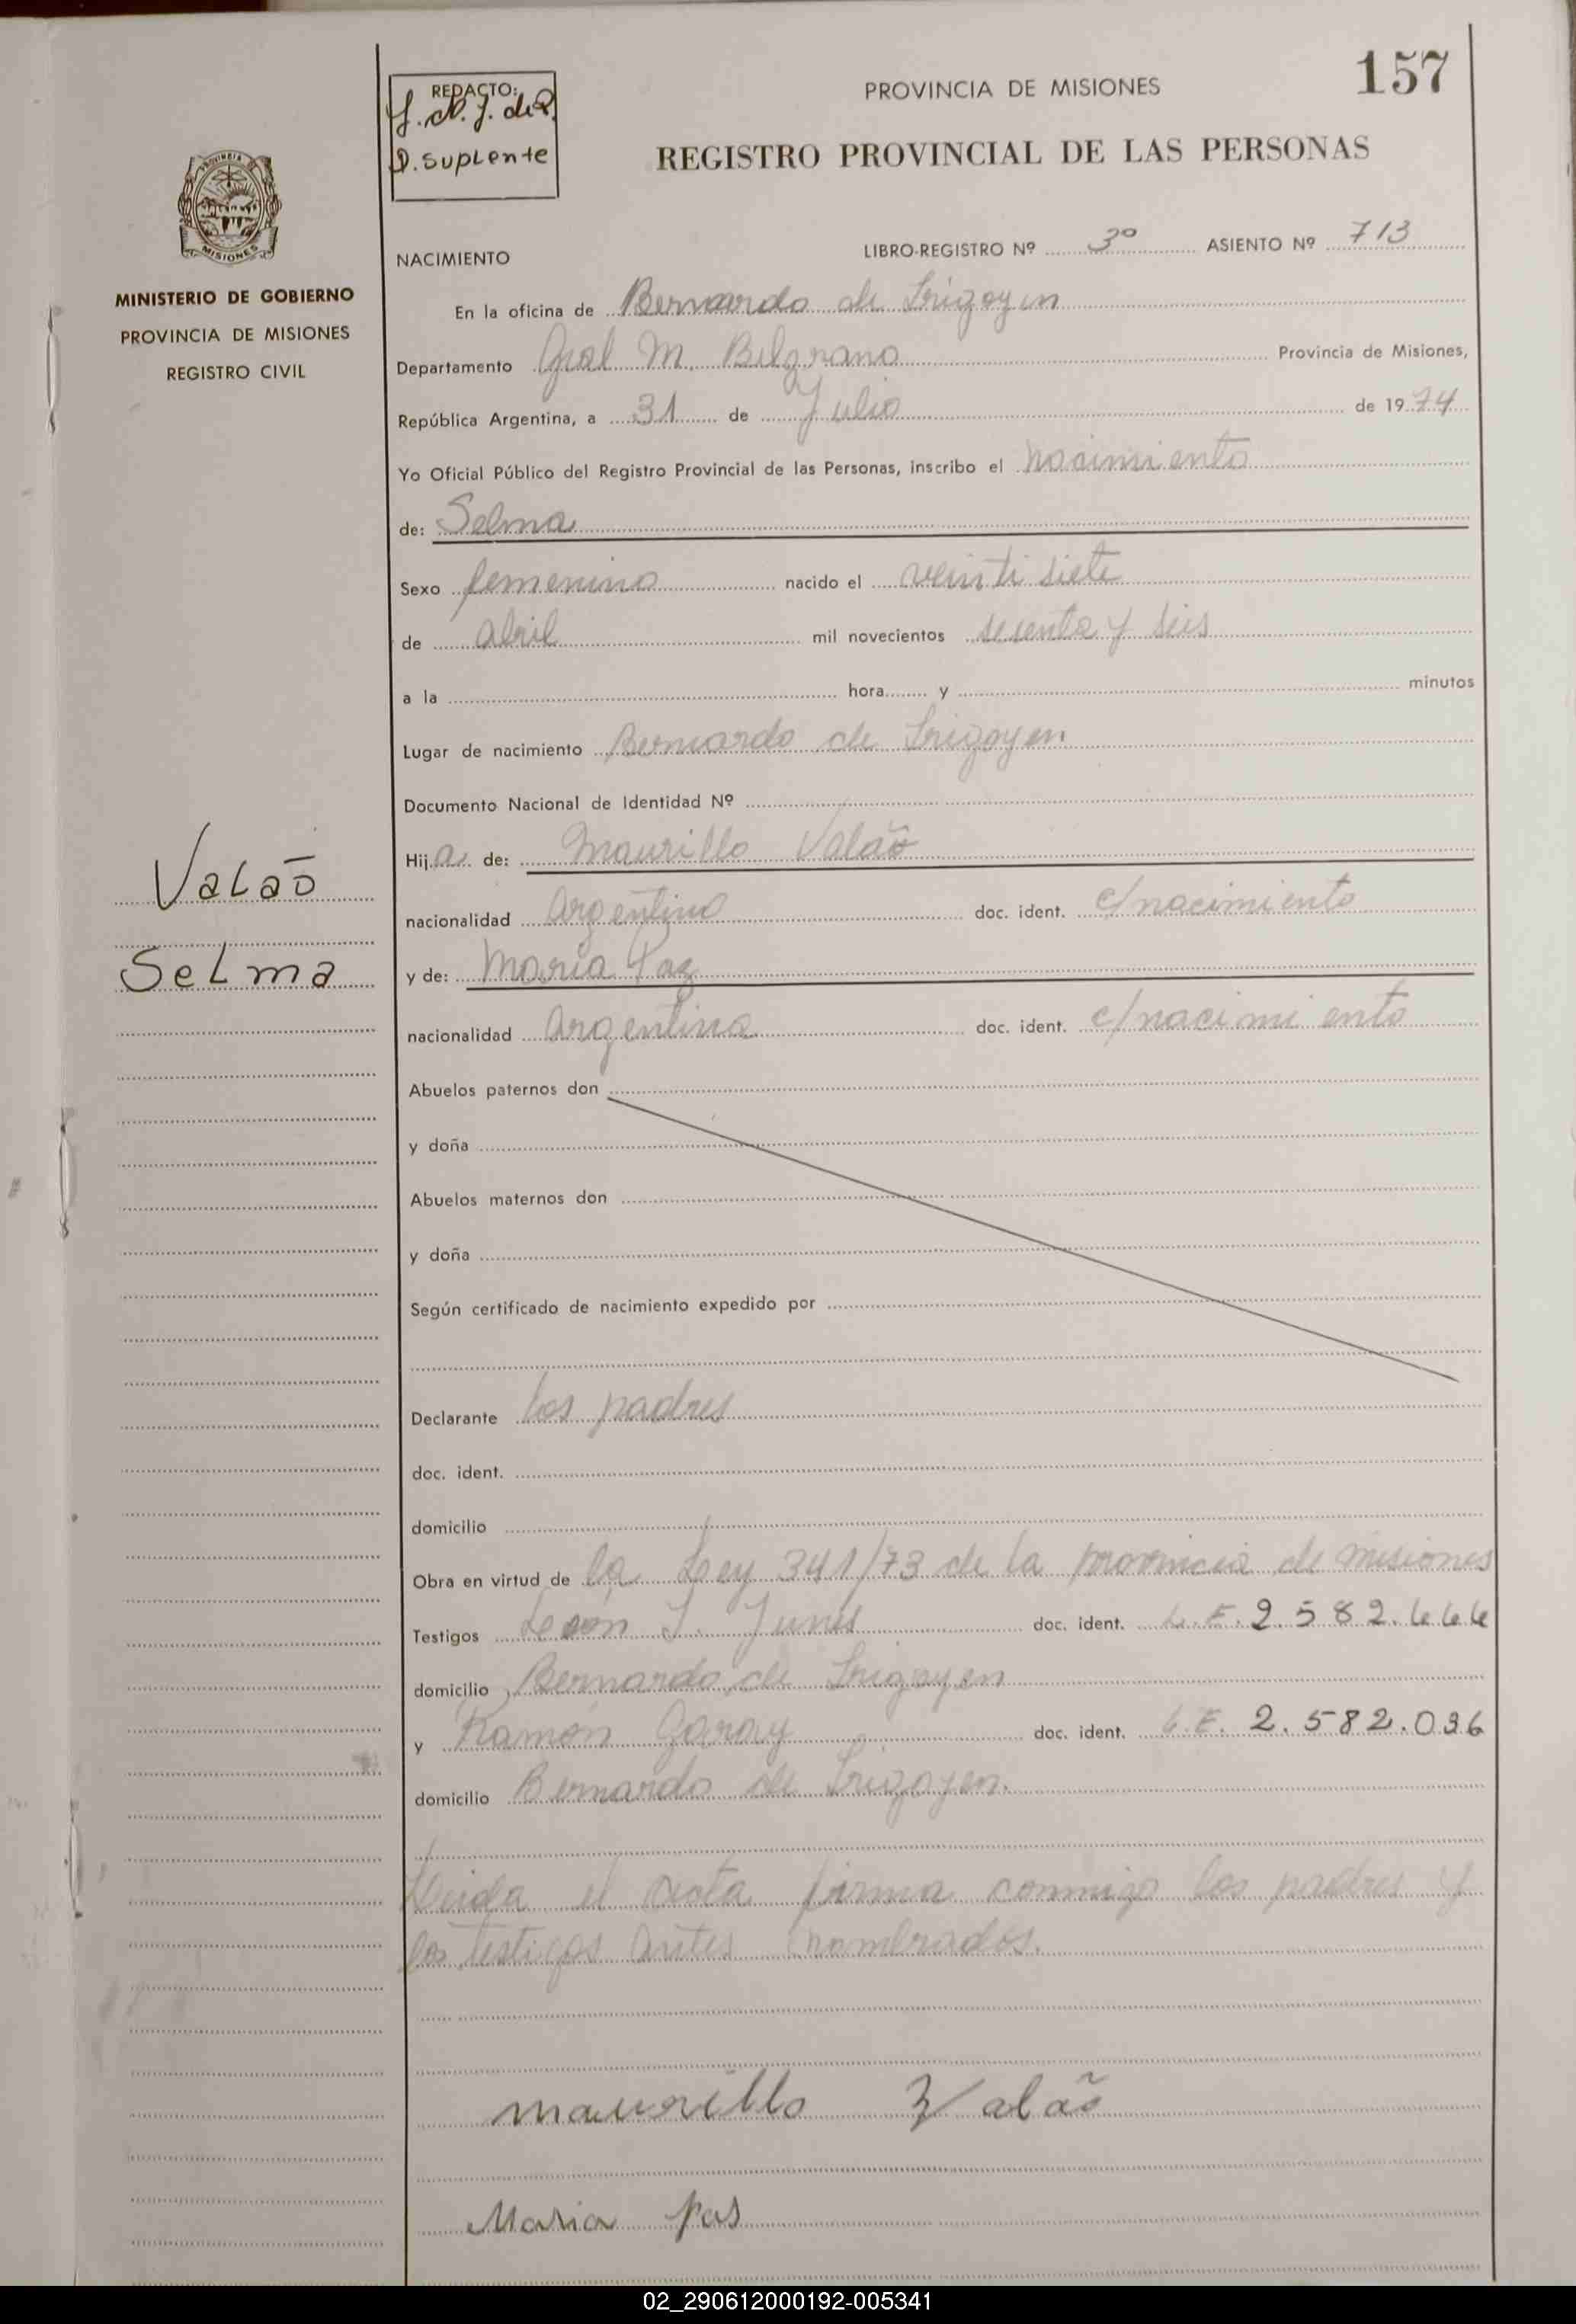 157
REDACTO:
D. Suplente
PROVINCIA DE MISIONES
REGISTRO PROVINCIAL DE LAS PERSONAS
PROVINCIA DE
MISIONES
MINISTERIO DE GOBIERNO
PROVINCIA DE MISIONES
REGISTRO CIVIL
NACIMIENTO
LIBRO-REGISTRO Nº 3º ASIENTO Nº 713
En la oficina de Bernardo de Irigoyen
Departamento Gral M. Belgrano Provincia de Misiones,
República Argentina, a 31 de Julio de 1974
Yo Oficial Público del Registro Provincial de las Personas, inscribo el nacimiento
de: Selma
Sexo femenino nacido el veinti siete
de abril mil novecientos sesenta y seis
a la hora y minutos
Lugar de nacimiento Bernardo de Irigoyen
Documento Nacional de Identidad Nº
Hija de: Maurillo Valaõ
Valaõ
nacionalidad Argentino doc. ident. c/nacimiento
Selma
y de: María Paz
nacionalidad Argentina doc. ident. c/nacimiento
Abuelos paternos don
y doña
Abuelos maternos don
y doña
Según certificado de nacimiento expedido por
Declarante los padres
doc. ident.
domicilio
Obra en virtud de la Ley 341/73 de la provincia de misiones
Testigos León J. Junis doc. ident. L.E. 2.582.444
domicilio Bernardo de Irigoyen
y Ramón Garay doc. ident. L.E. 2.582.036
domicilio Bernardo de Irigoyen.
Leida el acta firma conmigo los padres y
los testigos antes nombrados.
maurillo Valaõ
Maria pas
02_290612000192-005341